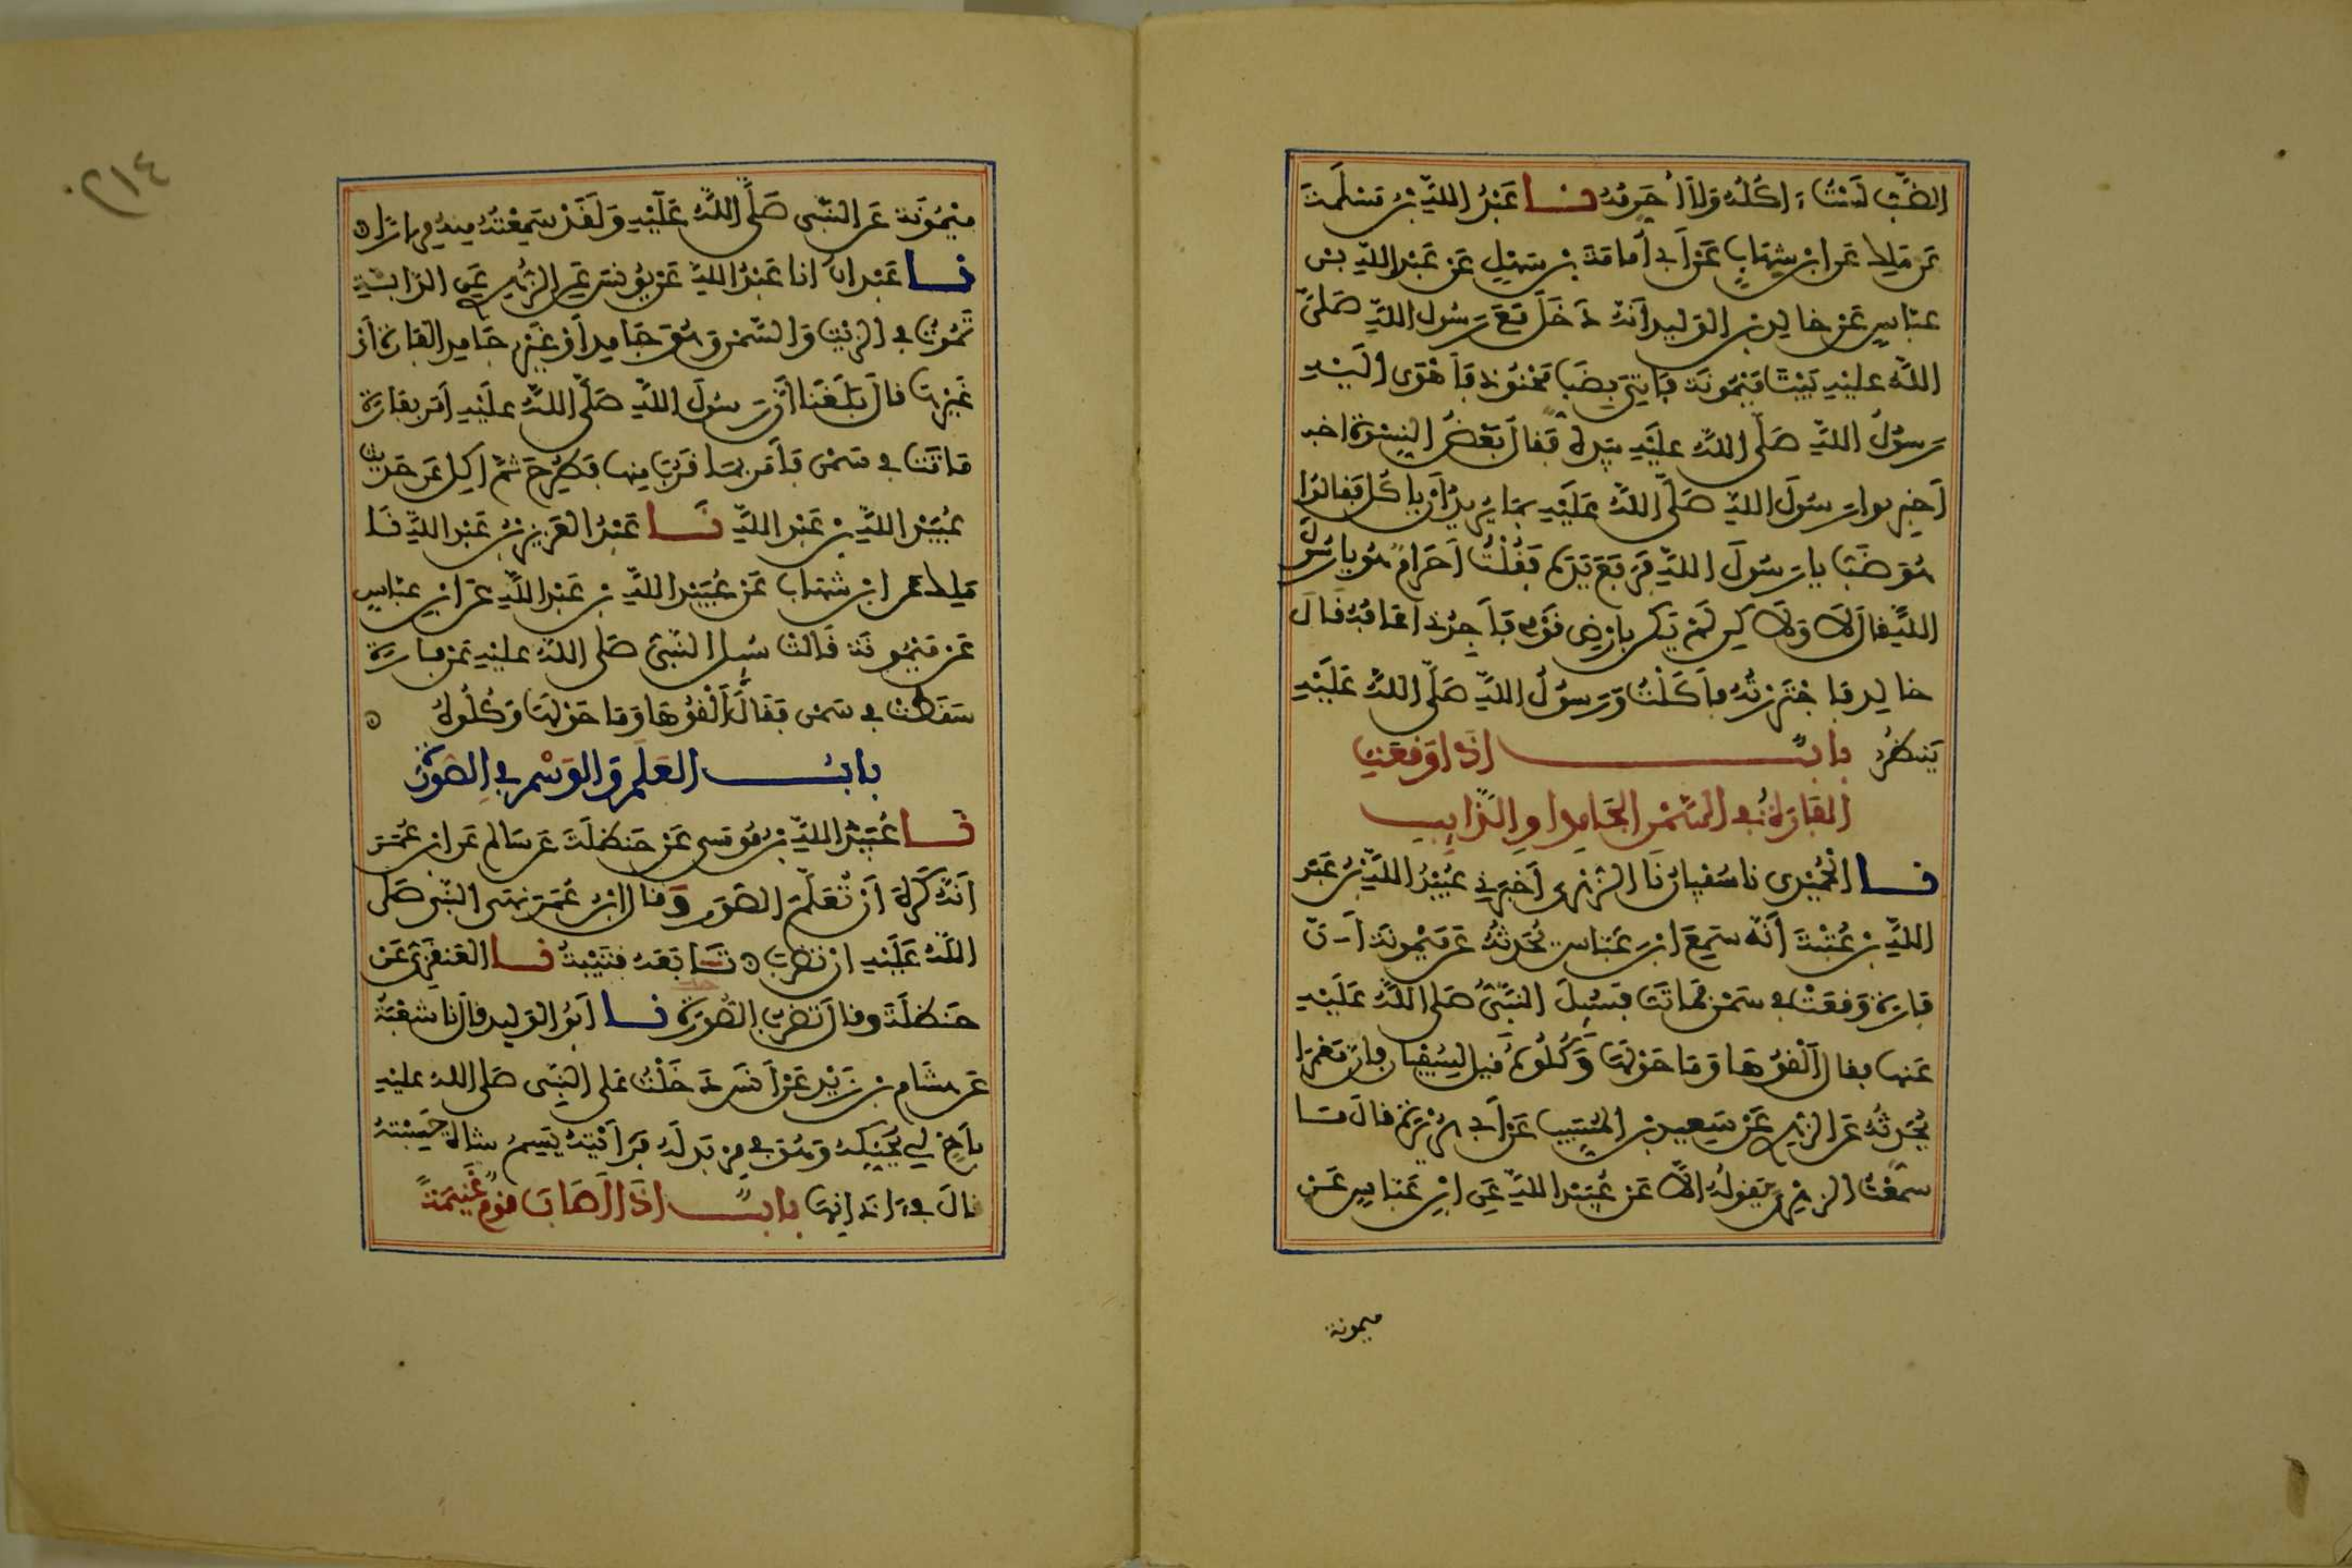 الضب لست ءاكله ولا أحرمه نا عبد الله بن مسلمة
عن ملك عن ابن شهاب عن أبي أمامة بن سهل عن عبد الله بن
عباس عن خالد بن الوليد أنه دخل مع رسول الله صلى
الله عليه بيت ميمونة فأتي بضب محنوذ فأهوى إليه
رسول الله صلى الله عليه بيده فقال بعض النسوة
أخبروا رسول الله صلى الله عليه بما يريد أن ياكل فقالوا
هو ضب يا رسول الله فرفع يده فقلت أحرام هو يا رسول
الله فقال لا ولكن لم يكن بأرض قومي فأجدني أعافه قال
خالد فاجتررته فأكلت ورسول الله صلى الله عليه
ينظر باب إذا وقعت
الفارة في السمن الجامد أو الذايب
نا الحميدي نا سفيان نا الزهري أخبرني عبيد الله بن عبد
الله بن عتبة أنه سمع ابن عباس يحدثه عن ميمونة أن
فارة وقعت في سمن فماتت فسئل النبي صلى الله عليه
عنها فقال ألقوها وما حولها وكلوه قيل لسفيان فإن معمرا
يحدثه عن الزهري عن سعيد بن المسيب عن أبي هريرة قال ما
سمعت الزهري يقوله إلا عن عبيد الله عن ابن عباس عن
ميمونة
٢١٤
ميمونة عن النبي صلى الله عليه ولقد سمعته منه مرارا
نا عبدان أنا عبد الله عن يونس عن الزهري عن الدابة
تموت في الزيت والسمن وهو جامد أو غير جامد الفارة أو
غيرها قال بلغنا أن رسول الله صلى الله عليه أمر بفارة
ماتت في سمن فأمر بما قرب منها فطرح ثم أكل عن حديث
عبيد الله بن عبد الله نا عبد العزيز بن عبد الله نا
ملك عن ابن شهاب عن عبيد الله بن عبد الله عن ابن عباس
عن ميمونة قالت سئل النبي صلى الله عليه عن فارة
سقطت في سمن فقال ألقوها وما حولها وكلوه
باب العلم والوسم في الصورة
نا عبيد الله بن موسى عن حنظلة عن سالم عن ابن عمر
أنه كره أن تعلم الصور وقال ابن عمر نهى النبي صلى
الله عليه أن تضرب تابعه قتيبة نا العنقزي عن
حنظلة وقال تضرب الصورة نا أبو الوليد قال نا شعبة
عن هشام بن زيد عن أنس دخلت على النبي صلى الله عليه
بأخ لي يحنكه وهو في مربد له فرأيته يسم شاة حسبته
قال في ءاذانها باب إذا أصاب قوم غنيمة